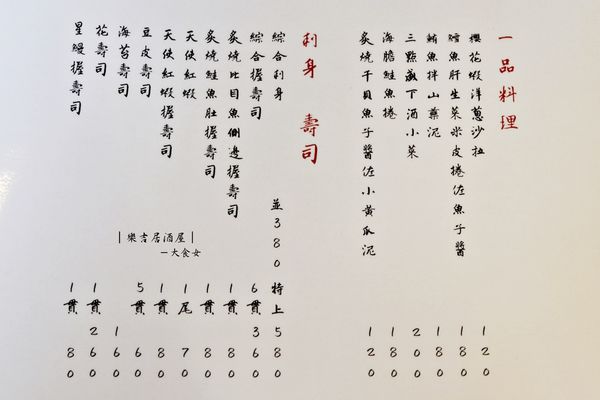 一品料理
櫻花蝦洋蔥沙拉 120
鱈魚肝生菜米皮捲佐魚子醬 180
鮪魚拌山藥泥 180
三點盛下酒小菜 200
海膽鮭魚捲 180
炙燒干貝魚子醬佐小黃瓜泥 120
刺身 壽司
綜合刺身 並380 特上580
綜合握壽司 6貫360
炙燒比目魚側邊握壽司 1貫80
炙燒鮭魚肚握壽司 1貫80
天使紅蝦 1尾70
天使紅蝦握壽司 1貫80
豆皮壽司 5貫60
海苔壽司 160
花壽司 1貫260
星鰻握壽司 1貫80
|樂吉居酒屋|
—大食女